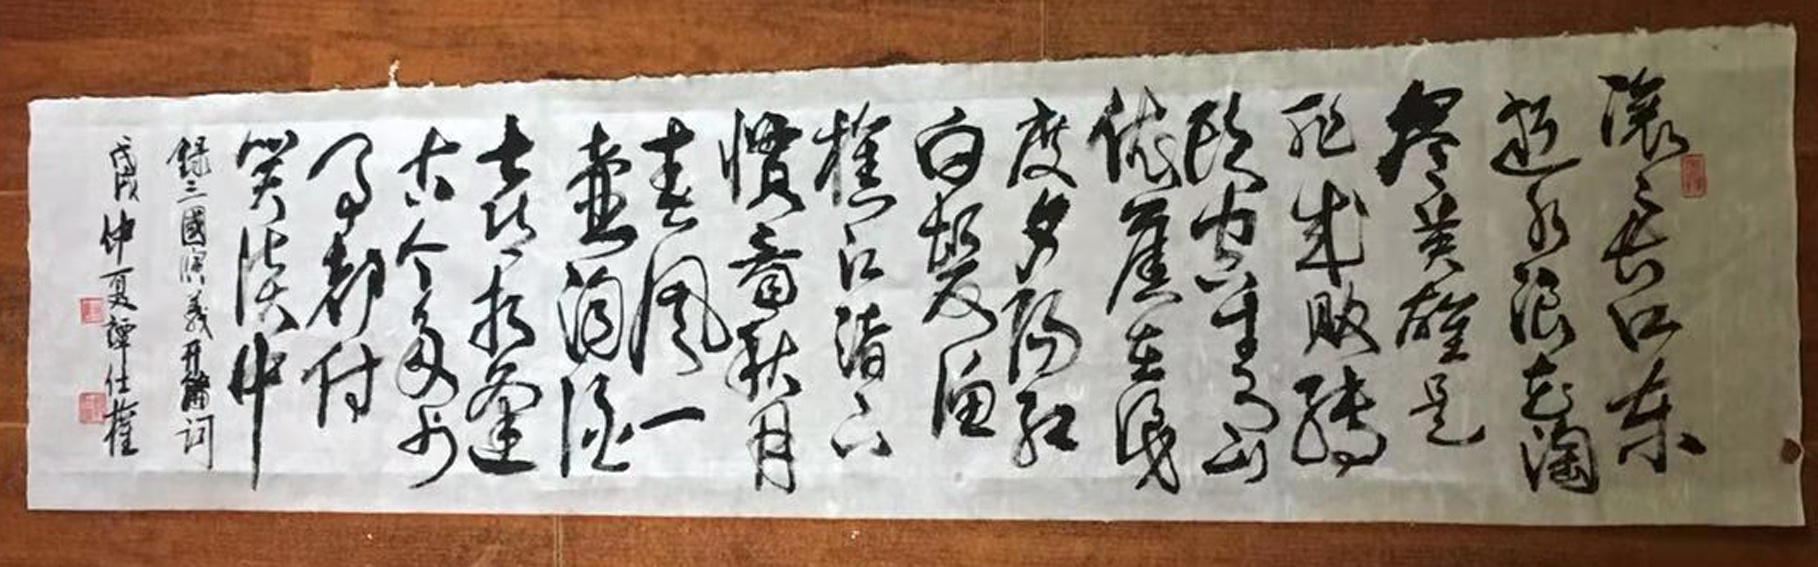 滚々长江东
逝水浪花淘
尽英雄是
非成败转
头空青山
依旧在几
度夕阳红
白髮渔
樵江渚上
惯看秋月
春风一
壶浊酒
喜相逢
古今多少
事都付
笑谈中
錄三國演义开篇词
戊戌仲夏譚仕權